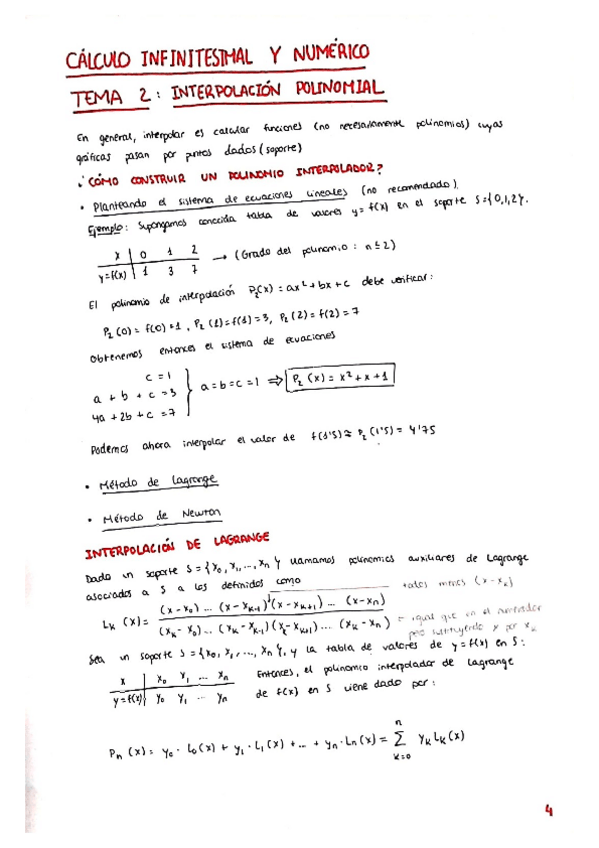 CÁLCULO INFINITESIMAL Y NUMÉRICO
TEMA 2: INTERPOLACIÓN POLINOMIAL
En general, interpolar es calcular funciones (no necesariamente polinomios) cuyas
gráficas pasan por puntos dados (soporte)
¿CÓMO CONSTRUIR UN POLINOMIO INTERPOLADOR?
• Planteando el sistema de ecuaciones lineales (no recomendado).
Ejemplo: Supongamos conocida tabla de valores y = f(x) en el soporte S={0,1,2}.
x | 0 1 2
y=f(x) | 1 3 7 → (Grado del polinomio: n ≤ 2)
El polinomio de interpolación P₂(x) = ax² + bx + c debe verificar:
P₂(0) = f(0) = 1, P₂(1) = f(1) = 3, P₂(2) = f(2) = 7
Obtenemos entonces el sistema de ecuaciones
c = 1
a + b + c = 3 } a = b = c = 1 ⇒ P₂(x) = x² + x + 1
4a + 2b + c = 7
Podemos ahora interpolar el valor de f(1'5) ≈ P₂(1'5) = 4'75
• Método de Lagrange
• Método de Newton
INTERPOLACIÓN DE LAGRANGE
Dado un soporte S = {x₀, x₁, ..., xₙ} llamamos polinomios auxiliares de Lagrange
asociados a S a los definidos como
todos menos (x - xₖ)
Lₖ(x) = (x - x₀) ... (x - xₖ₋₁)(x - xₖ₊₁) ... (x - xₙ) / (xₖ - x₀) ... (xₖ - xₖ₋₁)(xₖ - xₖ₊₁) ... (xₖ - xₙ) = igual que en el numerador
pero sustituyendo x por xₖ
Sea un soporte S = {x₀, x₁, ..., xₙ}, y la tabla de valores de y = f(x) en S:
x | x₀ x₁ ... xₙ Entonces, el polinomio interpolador de Lagrange
y=f(x) | y₀ y₁ ... yₙ de f(x) en S viene dado por:
Pₙ(x) = y₀ · L₀(x) + y₁ · L₁(x) + ... + yₙ · Lₙ(x) = ∑ₖ₌₀ⁿ yₖ Lₖ(x)
4